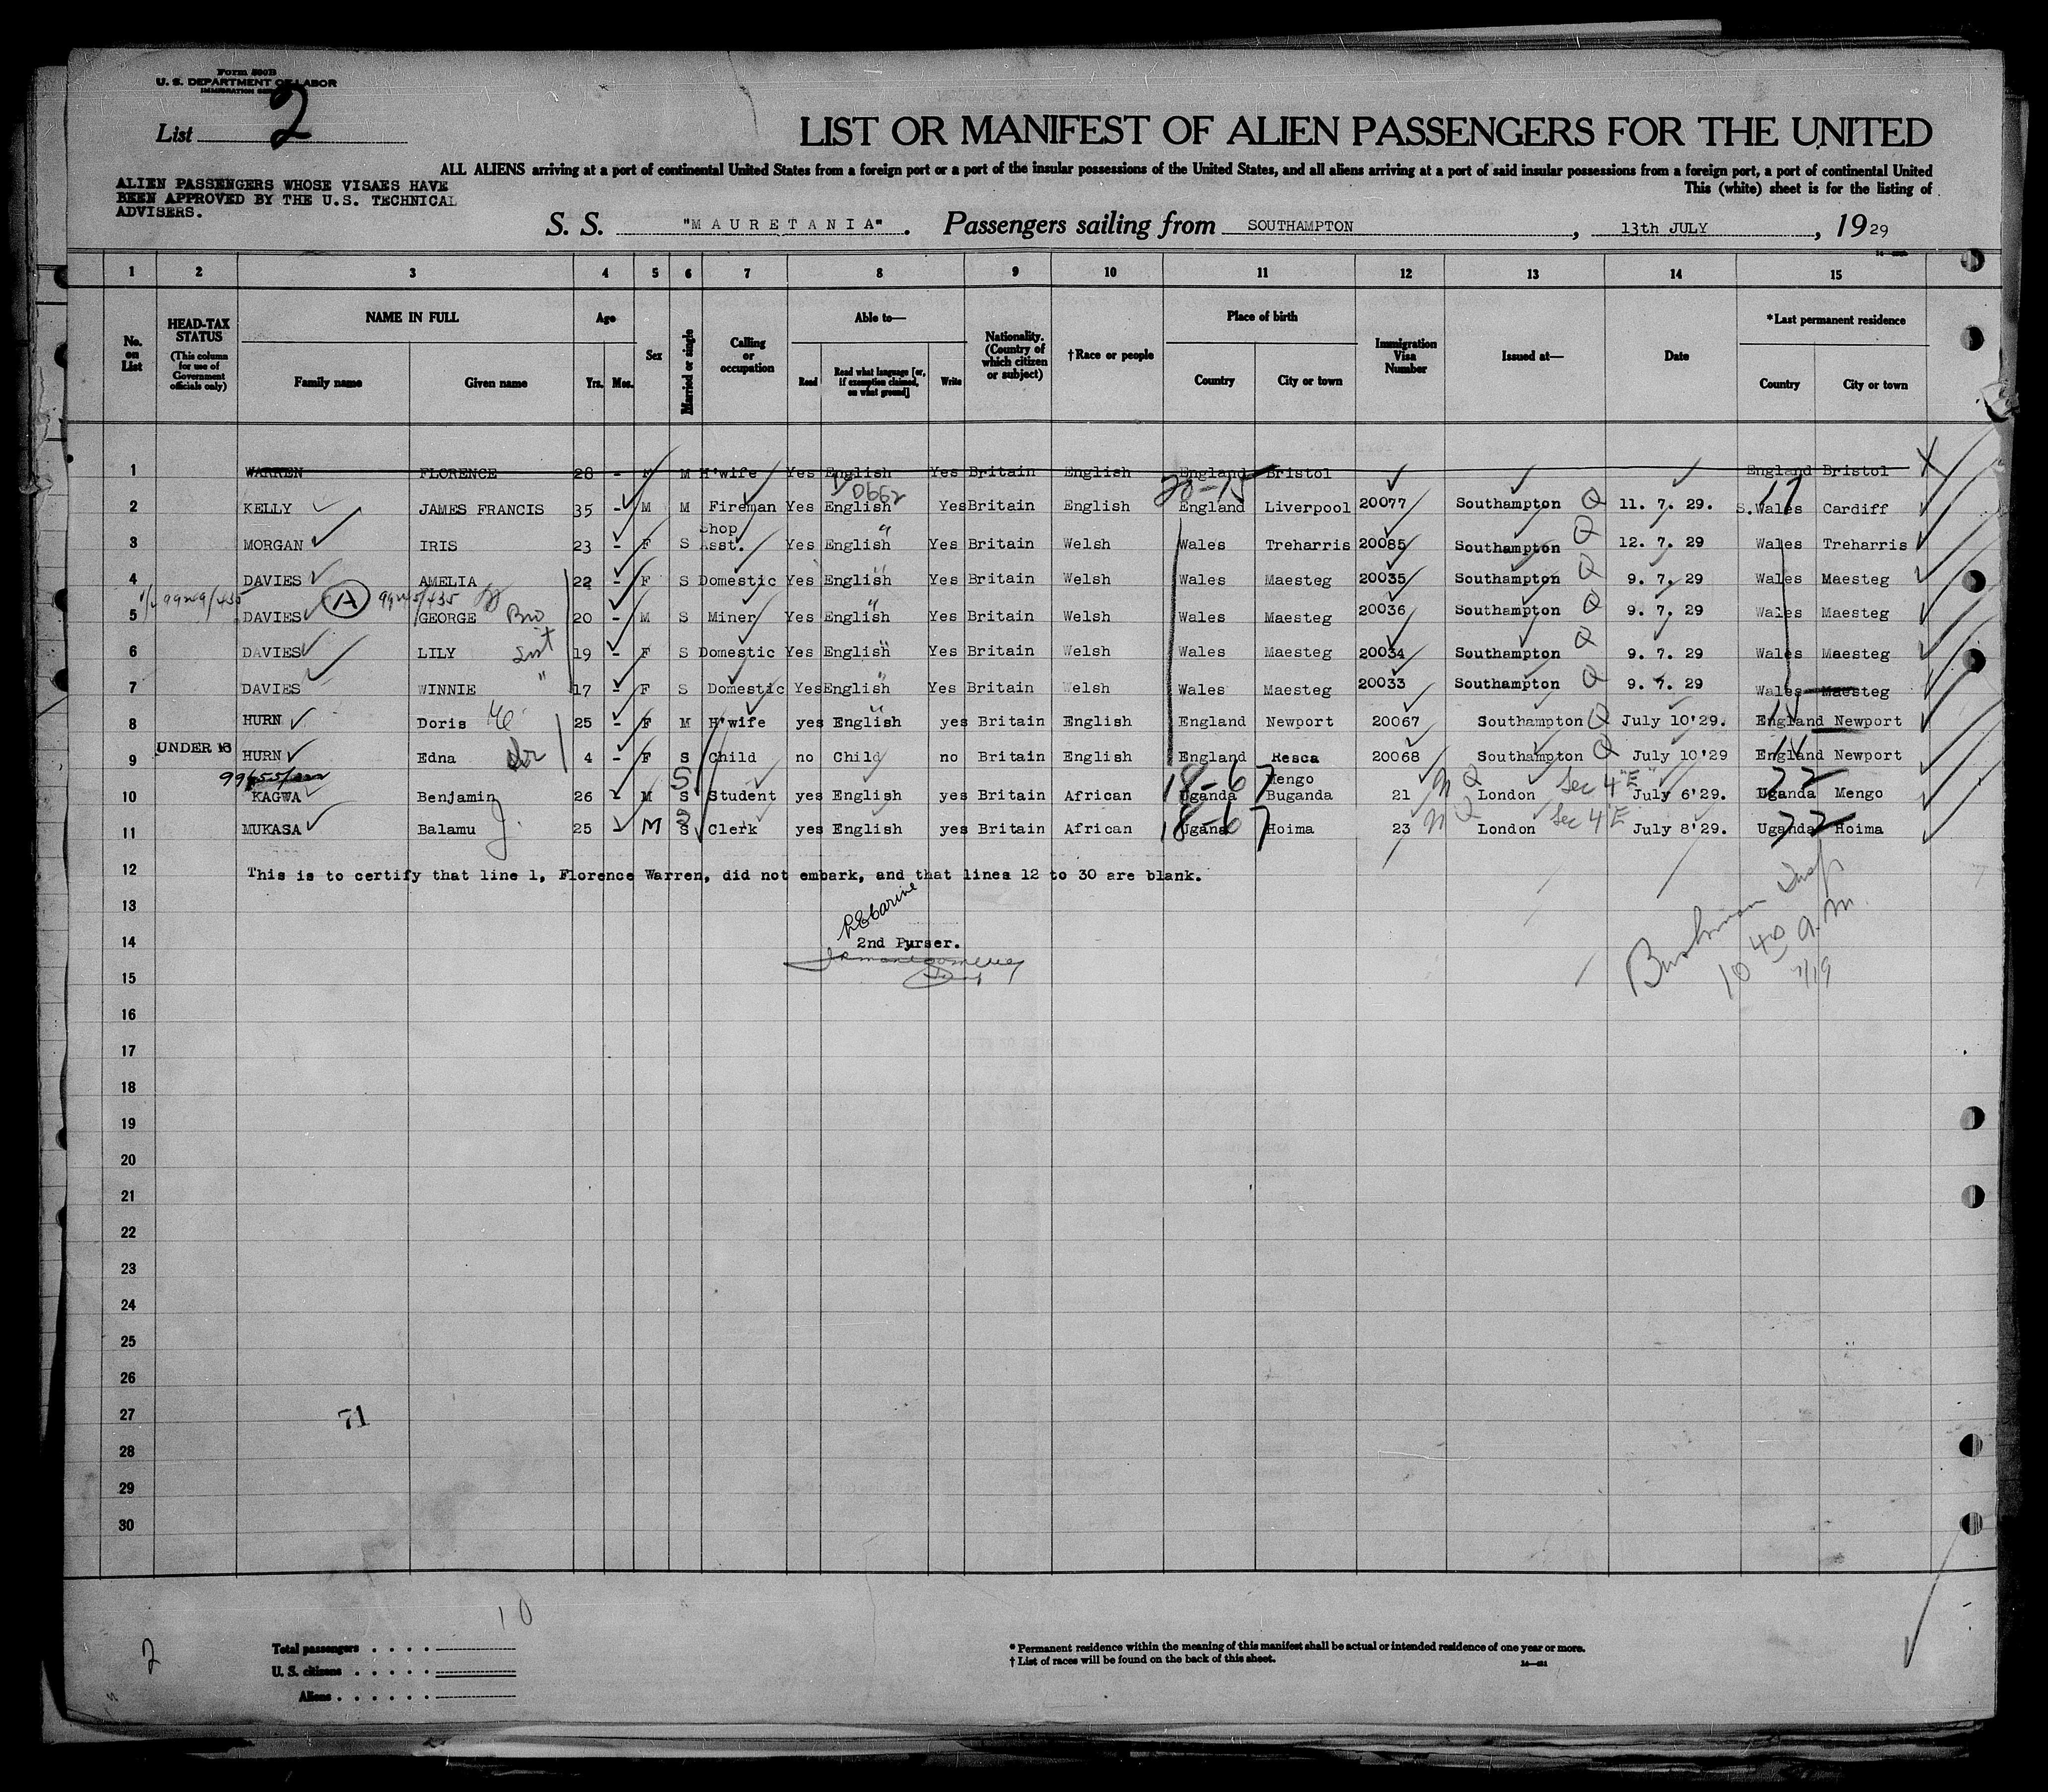 Form 500B
U. S. DEPARTMENT OF LABOR
IMMIGRATION SERVICE
List 2
LIST OR MANIFEST OF ALIEN PASSENGERS FOR THE UNITED
ALL ALIENS arriving at a port of continental United States from a foreign port or a port of the insular possessions of the United States, and all aliens arriving at a port of said insular possessions from a foreign port, a port of continental United
This (white) sheet is for the listing of
ALIEN PASSENGERS WHOSE VISAES HAVE
BEEN APPROVED BY THE U.S. TECHNICAL
ADVISERS.
S. S. "MAURETANIA". Passengers sailing from SOUTHAMPTON, 13th JULY, 1929
1 2 3 4 5 6 7 8 9 10 11 12 13 14 15
No. on List
HEAD-TAX STATUS (This column for use of Government officials only)
NAME IN FULL Family name Given name
Age Yrs. Mos.
Sex
Married or single
Calling or occupation
Able to— Read Read what language [or, if exemption claimed, on what ground] Write
Nationality. (Country of which citizen or subject)
†Race or people
Place of birth Country City or town
Immigration Visa Number
Issued at—
Date
*Last permanent residence Country City or town
1 WARREN FLORENCE 28 - F M H'wife Yes English Yes Britain English England Bristol England Bristol
2 KELLY JAMES FRANCIS 35 - M M Fireman Yes English Yes Britain English England Liverpool 20077 Southampton Q 11. 7. 29. S.Wales Cardiff
3 MORGAN IRIS 23 - F S Shop Asst. Yes English Yes Britain Welsh Wales Treharris 20085 Southampton Q 12. 7. 29 Wales Treharris
4 DAVIES AMELIA 22 - F S Domestic Yes English Yes Britain Welsh Wales Maesteg 20035 Southampton Q 9. 7. 29 Wales Maesteg
A
5 DAVIES GEORGE Bro 20 - M S Miner Yes English Yes Britain Welsh Wales Maesteg 20036 Southampton Q 9. 7. 29 Wales Maesteg
6 DAVIES LILY Sist 19 - F S Domestic Yes English Yes Britain Welsh Wales Maesteg 20034 Southampton Q 9. 7. 29 Wales Maesteg
7 DAVIES WINNIE " 17 - F S Domestic Yes English Yes Britain Welsh Wales Maesteg 20033 Southampton Q 9. 7. 29 Wales Maesteg
8 HURN Doris 25 - F M H'wife yes English yes Britain English England Newport 20067 Southampton Q July 10'29. England Newport
9 UNDER 16 HURN Edna 4 - F S Child no Child no Britain English England Resca 20068 Southampton Q July 10'29 England Newport
10 KAGWA Benjamin 26 - M S Student yes English yes Britain African 18-67 Uganda Mengo Buganda 21 N Q London Sec 4 "E" July 6'29. Uganda Mengo
11 MUKASA Balamu J. 25 - M S Clerk yes English yes Britain African 18-67 Ugana Hoima 23 N Q London Sec 4 E July 8'29. Uganda Hoima
12 This is to certify that line 1, Florence Warren, did not embark, and that lines 12 to 30 are blank.
13
14 2nd Purser.
15
10 40 a.m.
7/19
16
17
18
19
20
21
22
23
24
25
26
27
71
28
29
30
10
2
Total passengers
U. S. citizens
Aliens
* Permanent residence within the meaning of this manifest shall be actual or intended residence of one year or more.
† List of races will be found on the back of this sheet.